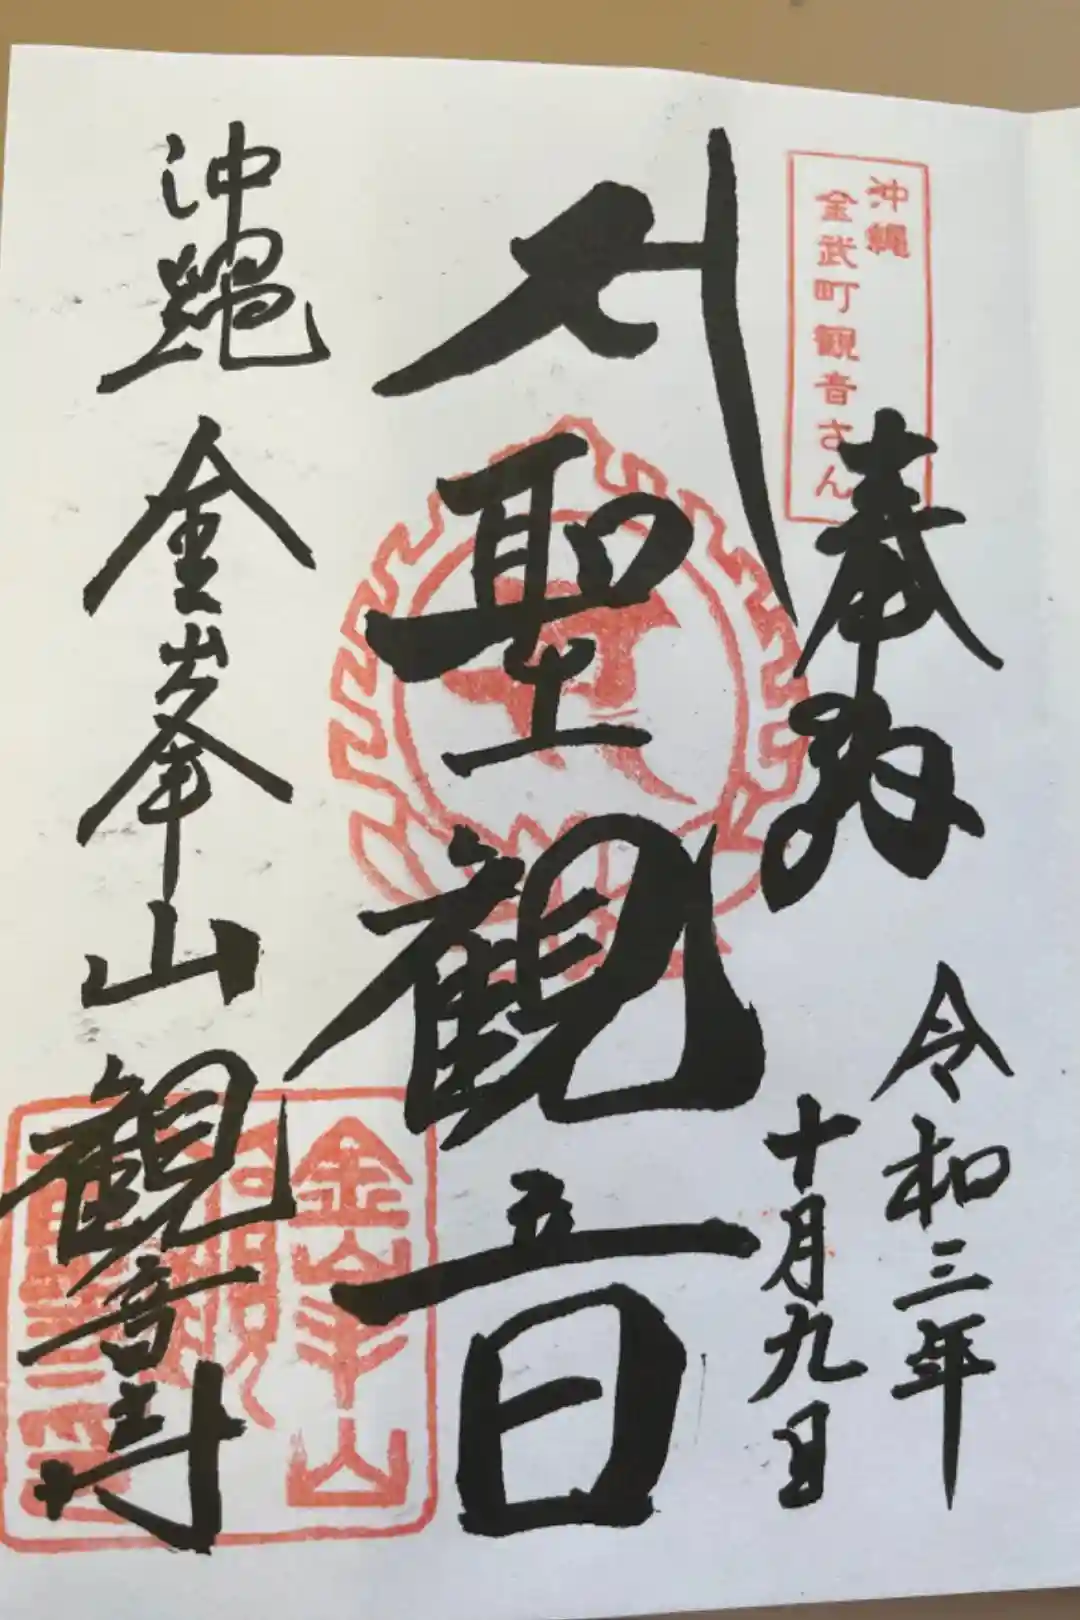 沖縄
金武町観音さん
奉納
令和三年
十月九日
聖観音
沖縄 金峯山 観音寺